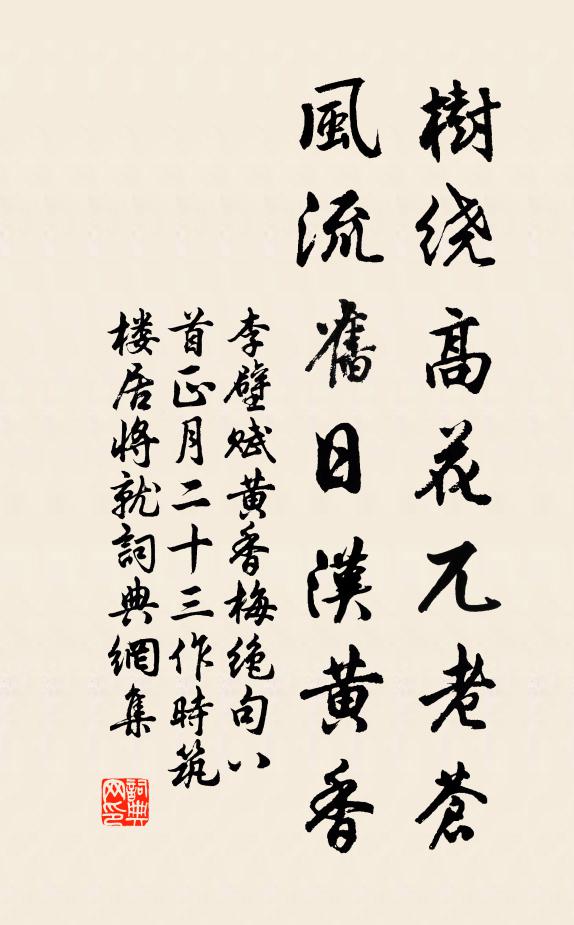 樹绕高花兀老蒼
風流舊日漢黄香
李壁赋黄香梅绝句八
首正月二十三作時筑
楼居将就詞典網集
詞典网印